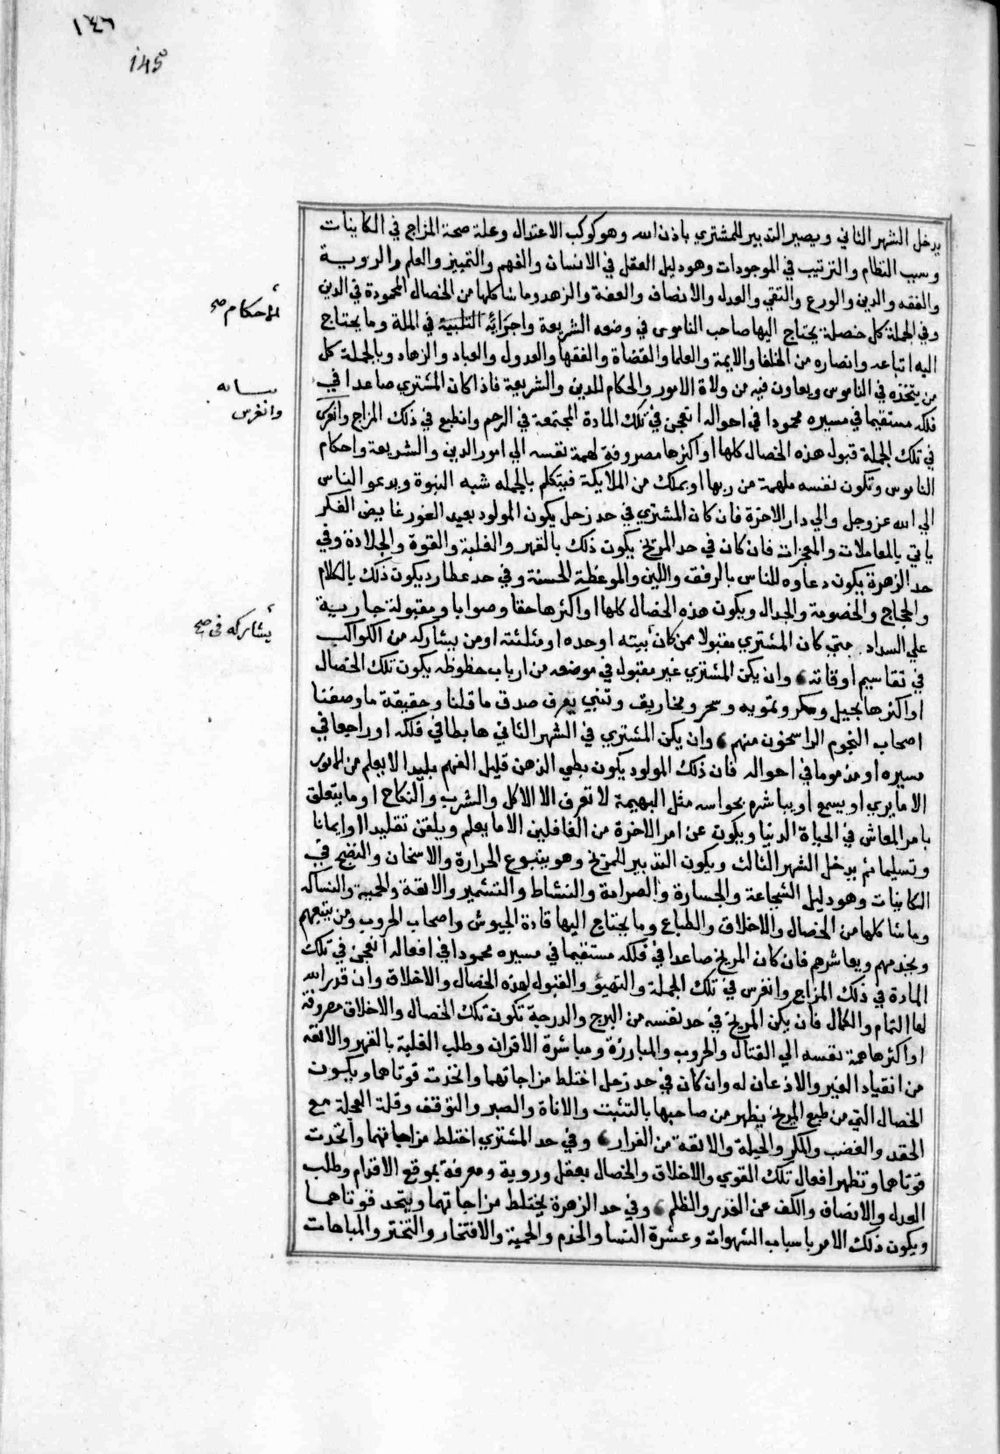 ١٤٦
145
يدخل الشهر الثاني ويصير التدبير للمشتري باذن الله وهو كوكب الاعتدال وعلة صحة المزاج في الكاينات
وسبب النظام والترتيب في الموجودات وهو دليل العقل في الانسان والفهم والتمييز والعلم والروية
والفقه والدين والورع والتقي والعدل والانصاف والعفة والزهد وما شاكلها من الخصال المحمودة في الدين
وفي الجملة كل خصلة يحتاج اليها صاحب الناموس في وضعه الشريعة واجرايه التلبية في الملة وما يحتاج
اليه اتباعه وانصاره من الخلفا والايمة والعلما والقضاة والفقها والعدول والعباد والزهاد وبالجملة كل
من يتخذه في الناموس ويعاون فيه من ولاة الامور والحكام للدين والشريعة فاذا كان المشتري صاعدا في
فلكه مستقيما في مسيره محمودا في احواله انعجن في تلك المادة المجتمعة في الرحم وانطبع في ذلك المزاج وانغرس
في تلك الجملة قبول هذه الخصال كلها او اكثرها مصروفة لهمة نفسه الي امور الدين والشريعة واحكام
الناموس وتكون نفسه ملهمة من ربها او بملك من الملايكة فيتكلم بالجمله شبه النبوة ويدعو الناس
الي الله عز وجل والي دار الاخرة فان كان المشتري في حد زحل يكون المولود بعيد الغور غايض الفكر
ياتي بالمعاملات والمعجزات فان كان في حد المريخ يكون ذلك بالقهر والغلبة والقوة والجلادة وفي
حد الزهرة يكون دعاوه للناس بالرفق واللين والموعظة الحسنة وفي حد عطارد يكون ذلك بالكلام
والحجاج والخصومة والجدال ويكون هذه الخصال كلها او اكثرها حقا وصوابا ومقبولة جارية
علي السداد متي كان المشتري مقبولا ممن كان بيته او حده او مثلثته او من يشاركه من الكواكب
في تقاسيم اوقاته وان يكن المشتري غير مقبول في موضعه من ارباب حظوظه يكون تلك الخصال
او اكثرها بحيل ومكر وتمويه وسحر ومخاريق وتنبي يعرف صدق ما قلنا وحقيقة ما وصفنا
اصحاب النجوم الراسخون منهم وان يكن المشتري في الشهر الثاني هابطا في فلكه او راجعا في
مسيره او مذموما في احواله فان ذلك المولود يكون بطي الذهن قليل الفهم بليدا لا يعلم من الامور
الا ما يري او يسمع او يباشره بحواسه مثل البهيمة لا تعرف الا الاكل والشرب والنكاح او ما يتعلق
بامر المعاش في الحياة الدنيا ويكون عن امر الاخرة من الغافلين الا ما يعلم ويلقن تقليدا او ايمانا
وتسليما ثم يدخل الشهر الثالث ويكون التدبير للمريخ وهو ينبوع الحرارة والاسخان والنضج في
الكاينات وهو دليل الشجاعة والجسارة والصرامة والنشاط والتشمير والانفة والحمية
وما شاكلها من الخصال والاخلاق والطباع وما يحتاج اليها قادة الجيوش واصحاب الحروب ومن يتبعهم
ويخدمهم ويعاشرهم فان كان المريخ صاعدا في فلكه مستقيما في مسيره محمودا في افعاله انعجن في تلك
المادة في ذلك المزاج وانغرس في تلك الجملة والتهيؤ والقبول لهذه الخصال والاخلاق وان قدر الله
لها التمام والكمال فان يكن المريخ في حد نفسه من البرج والدرجة تكون تلك الخصال والاخلاق مصروفة
او اكثرها همة نفسه الي القتال والحروب والمبارزة ومباشرة الاقران وطلب الغلبة بالقهر والانفة
من انقياد الغير والاذعان له وان كان في حد زحل اختلط مزاجاتهما واتحدت قوتاهما ويكون
الخصال التي من طبع المريخ يظهر من صاحبها بالتثبت والاناة والصبر والتوقف وقلة العجلة مع
الحقد والغضب والمكر والحيلة والانفة من الفرار وفي حد المشتري اختلط مزاجاتهما واتحدت
قوتاهما وتظهر افعال تلك القوي والاخلاق والخصال بعقل وروية ومعرفة بموقع الاقدام وطلب
العدل والانصاف والكف عن الغدر والظلم وفي حد الزهرة يختلط مزاجاتهما ويتحد قوتاهما
ويكون ذلك الامر باسباب الشهوات وعشرة النسا والخدم والحمية والافتخار والتبختر والمباهات
للاحكام صح
وانغرس
يشاركه في صح